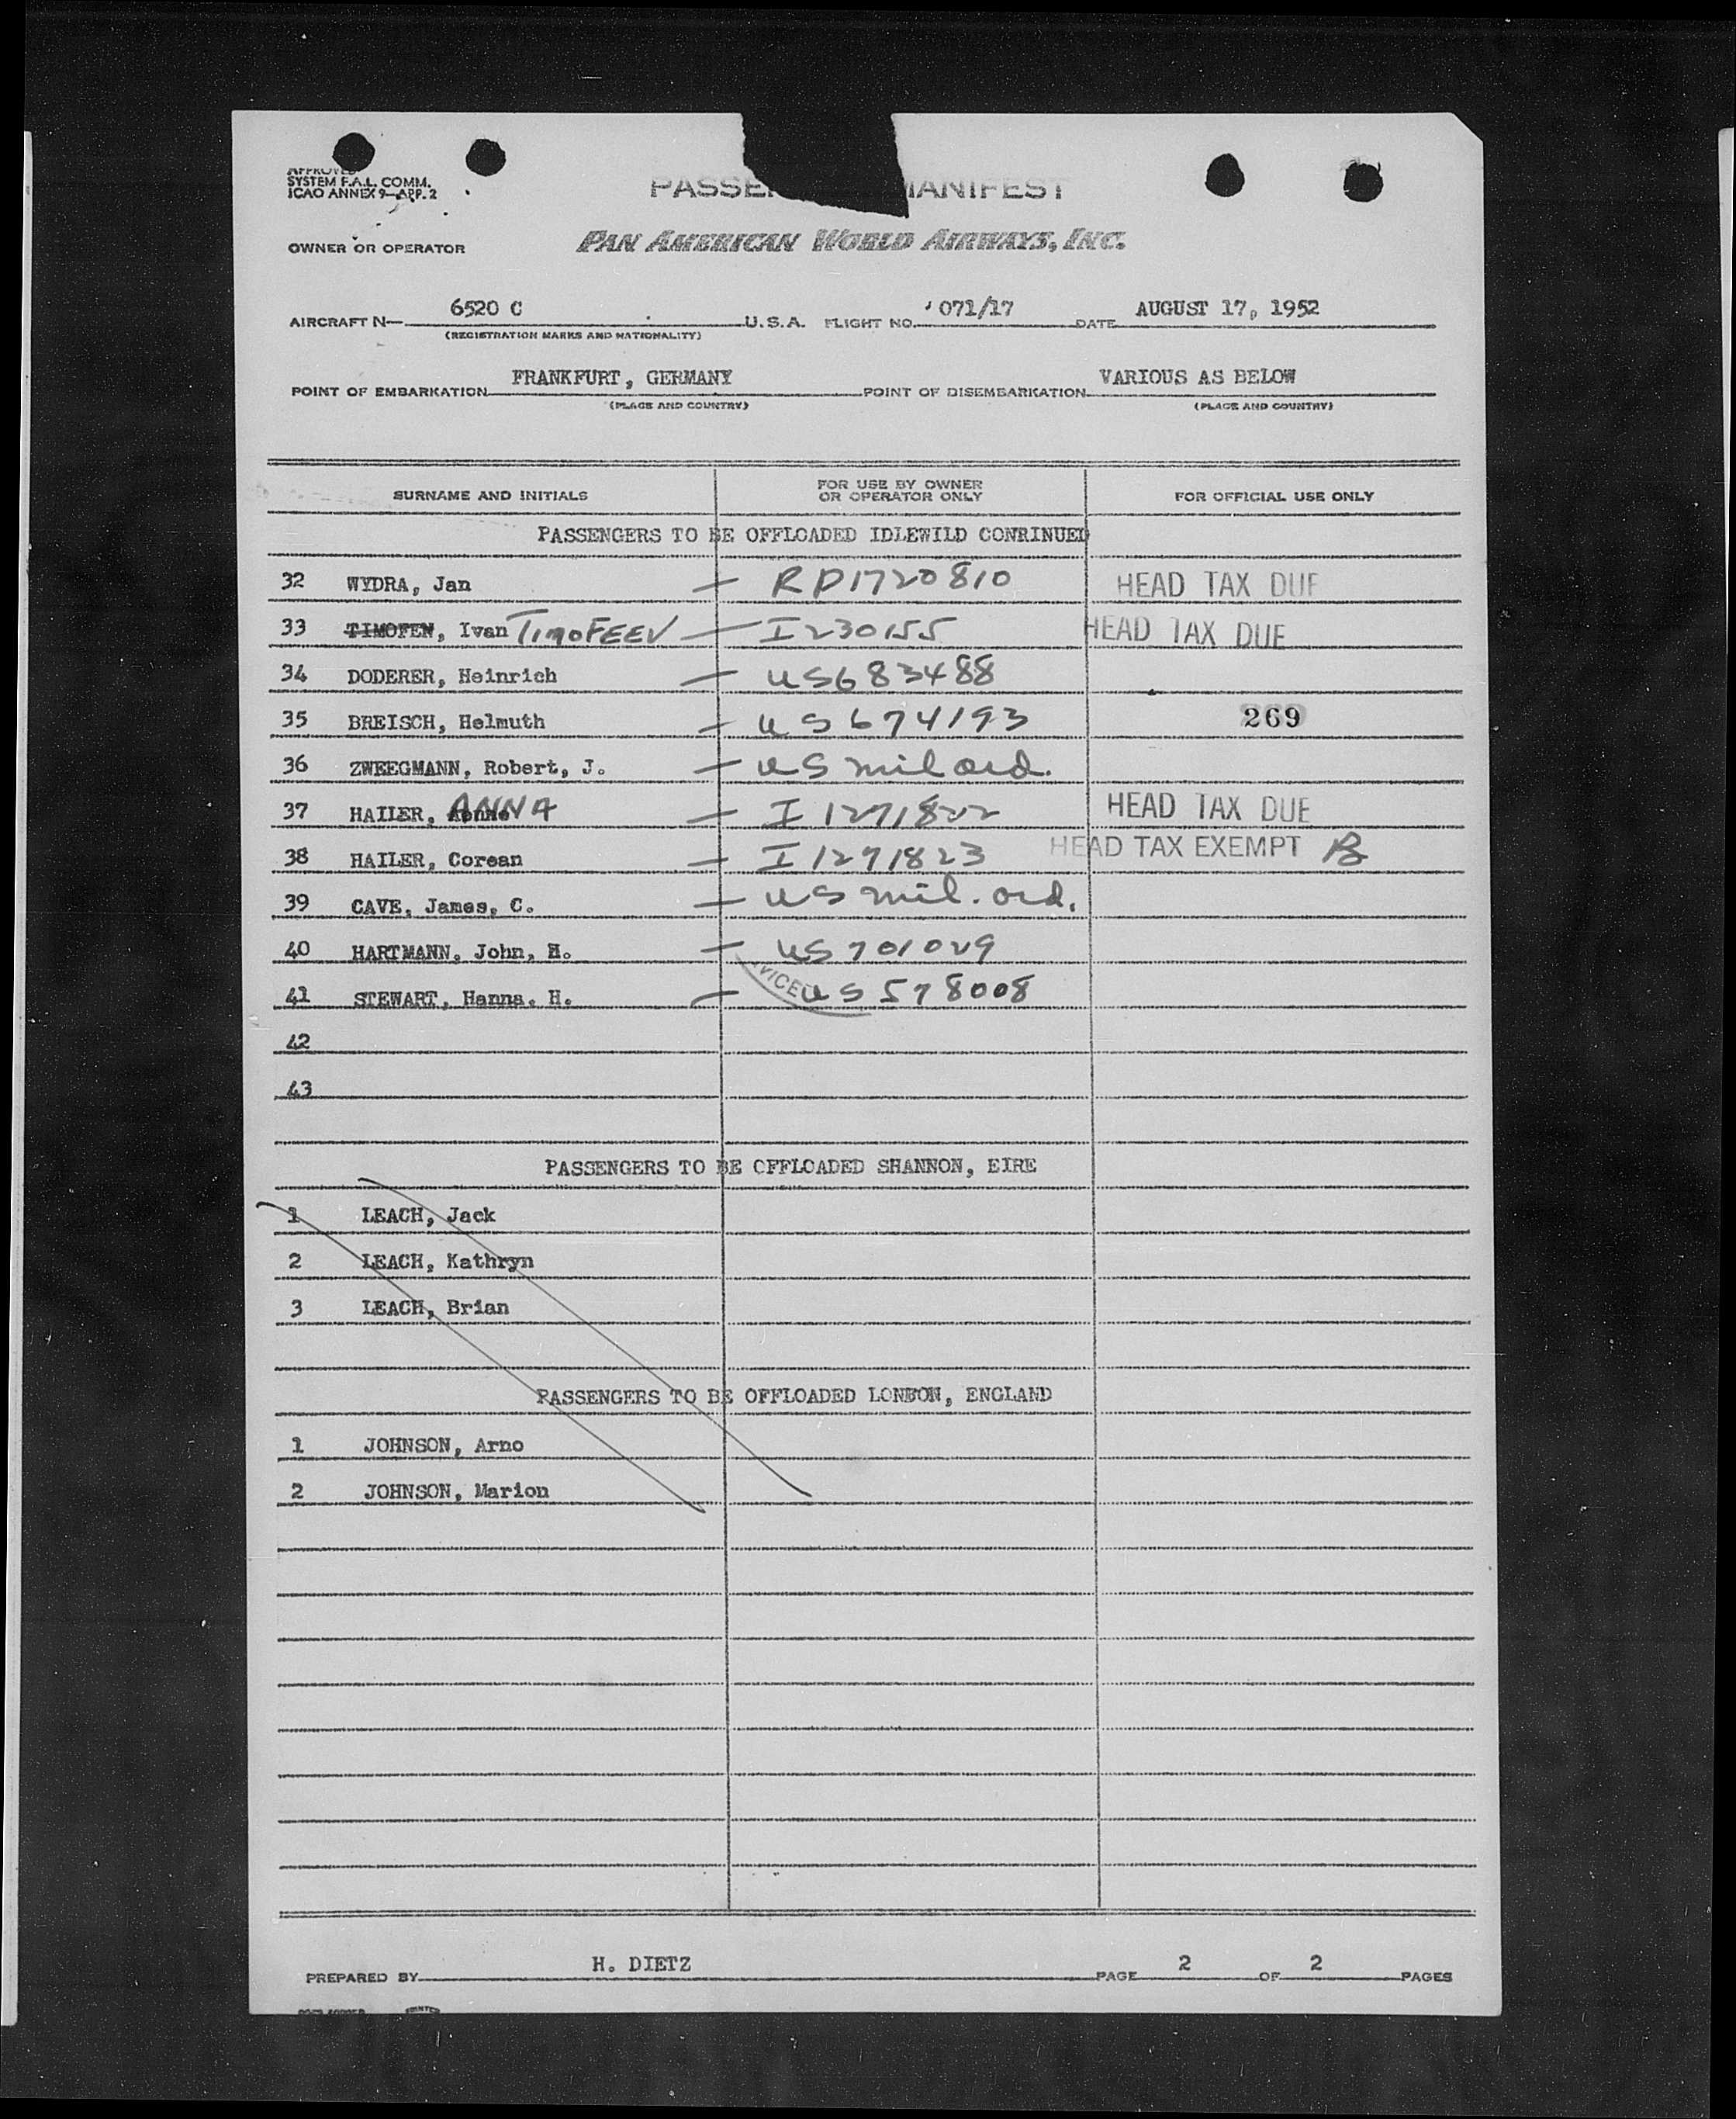 SYSTEM F.A.L. COMM.
ICAO ANNEX 9—APP. 2
PASSE MANIFEST
OWNER OR OPERATOR PAN AMERICAN WORLD AIRWAYS, INC.
AIRCRAFT N— 6520 C U.S.A. FLIGHT NO. 071/17 DATE AUGUST 17, 1952
(REGISTRATION MARKS AND NATIONALITY)
POINT OF EMBARKATION FRANKFURT, GERMANY POINT OF DISEMBARKATION VARIOUS AS BELOW
(PLACE AND COUNTRY) (PLACE AND COUNTRY)
SURNAME AND INITIALS FOR USE BY OWNER OR OPERATOR ONLY FOR OFFICIAL USE ONLY
PASSENGERS TO BE OFFLOADED IDLEWILD CONRINUED
32 WYDRA, Jan — RP1720810 HEAD TAX DUE
33 TIMOFEW, Ivan TIMOFEEV — I230155 HEAD TAX DUE
34 DODERER, Heinrich — US683488
35 BREISCH, Helmuth — US674193 269
36 ZWEEGMANN, Robert, J. — US mil ord.
37 HAILER, ANNA — I 1271822 HEAD TAX DUE
38 HAILER, Corean — I 1271823 HEAD TAX EXEMPT
39 CAVE, James, C. — US mil. ord.
40 HARTMANN, John, H. — US 701029
41 STEWART, Hanna, H. — US 578008
42
43
PASSENGERS TO BE OFFLOADED SHANNON, EIRE
1 LEACH, Jack
2 LEACH, Kathryn
3 LEACH, Brian
PASSENGERS TO BE OFFLOADED LONDON, ENGLAND
1 JOHNSON, Arno
2 JOHNSON, Marion
PREPARED BY H. DIETZ PAGE 2 OF 2 PAGES